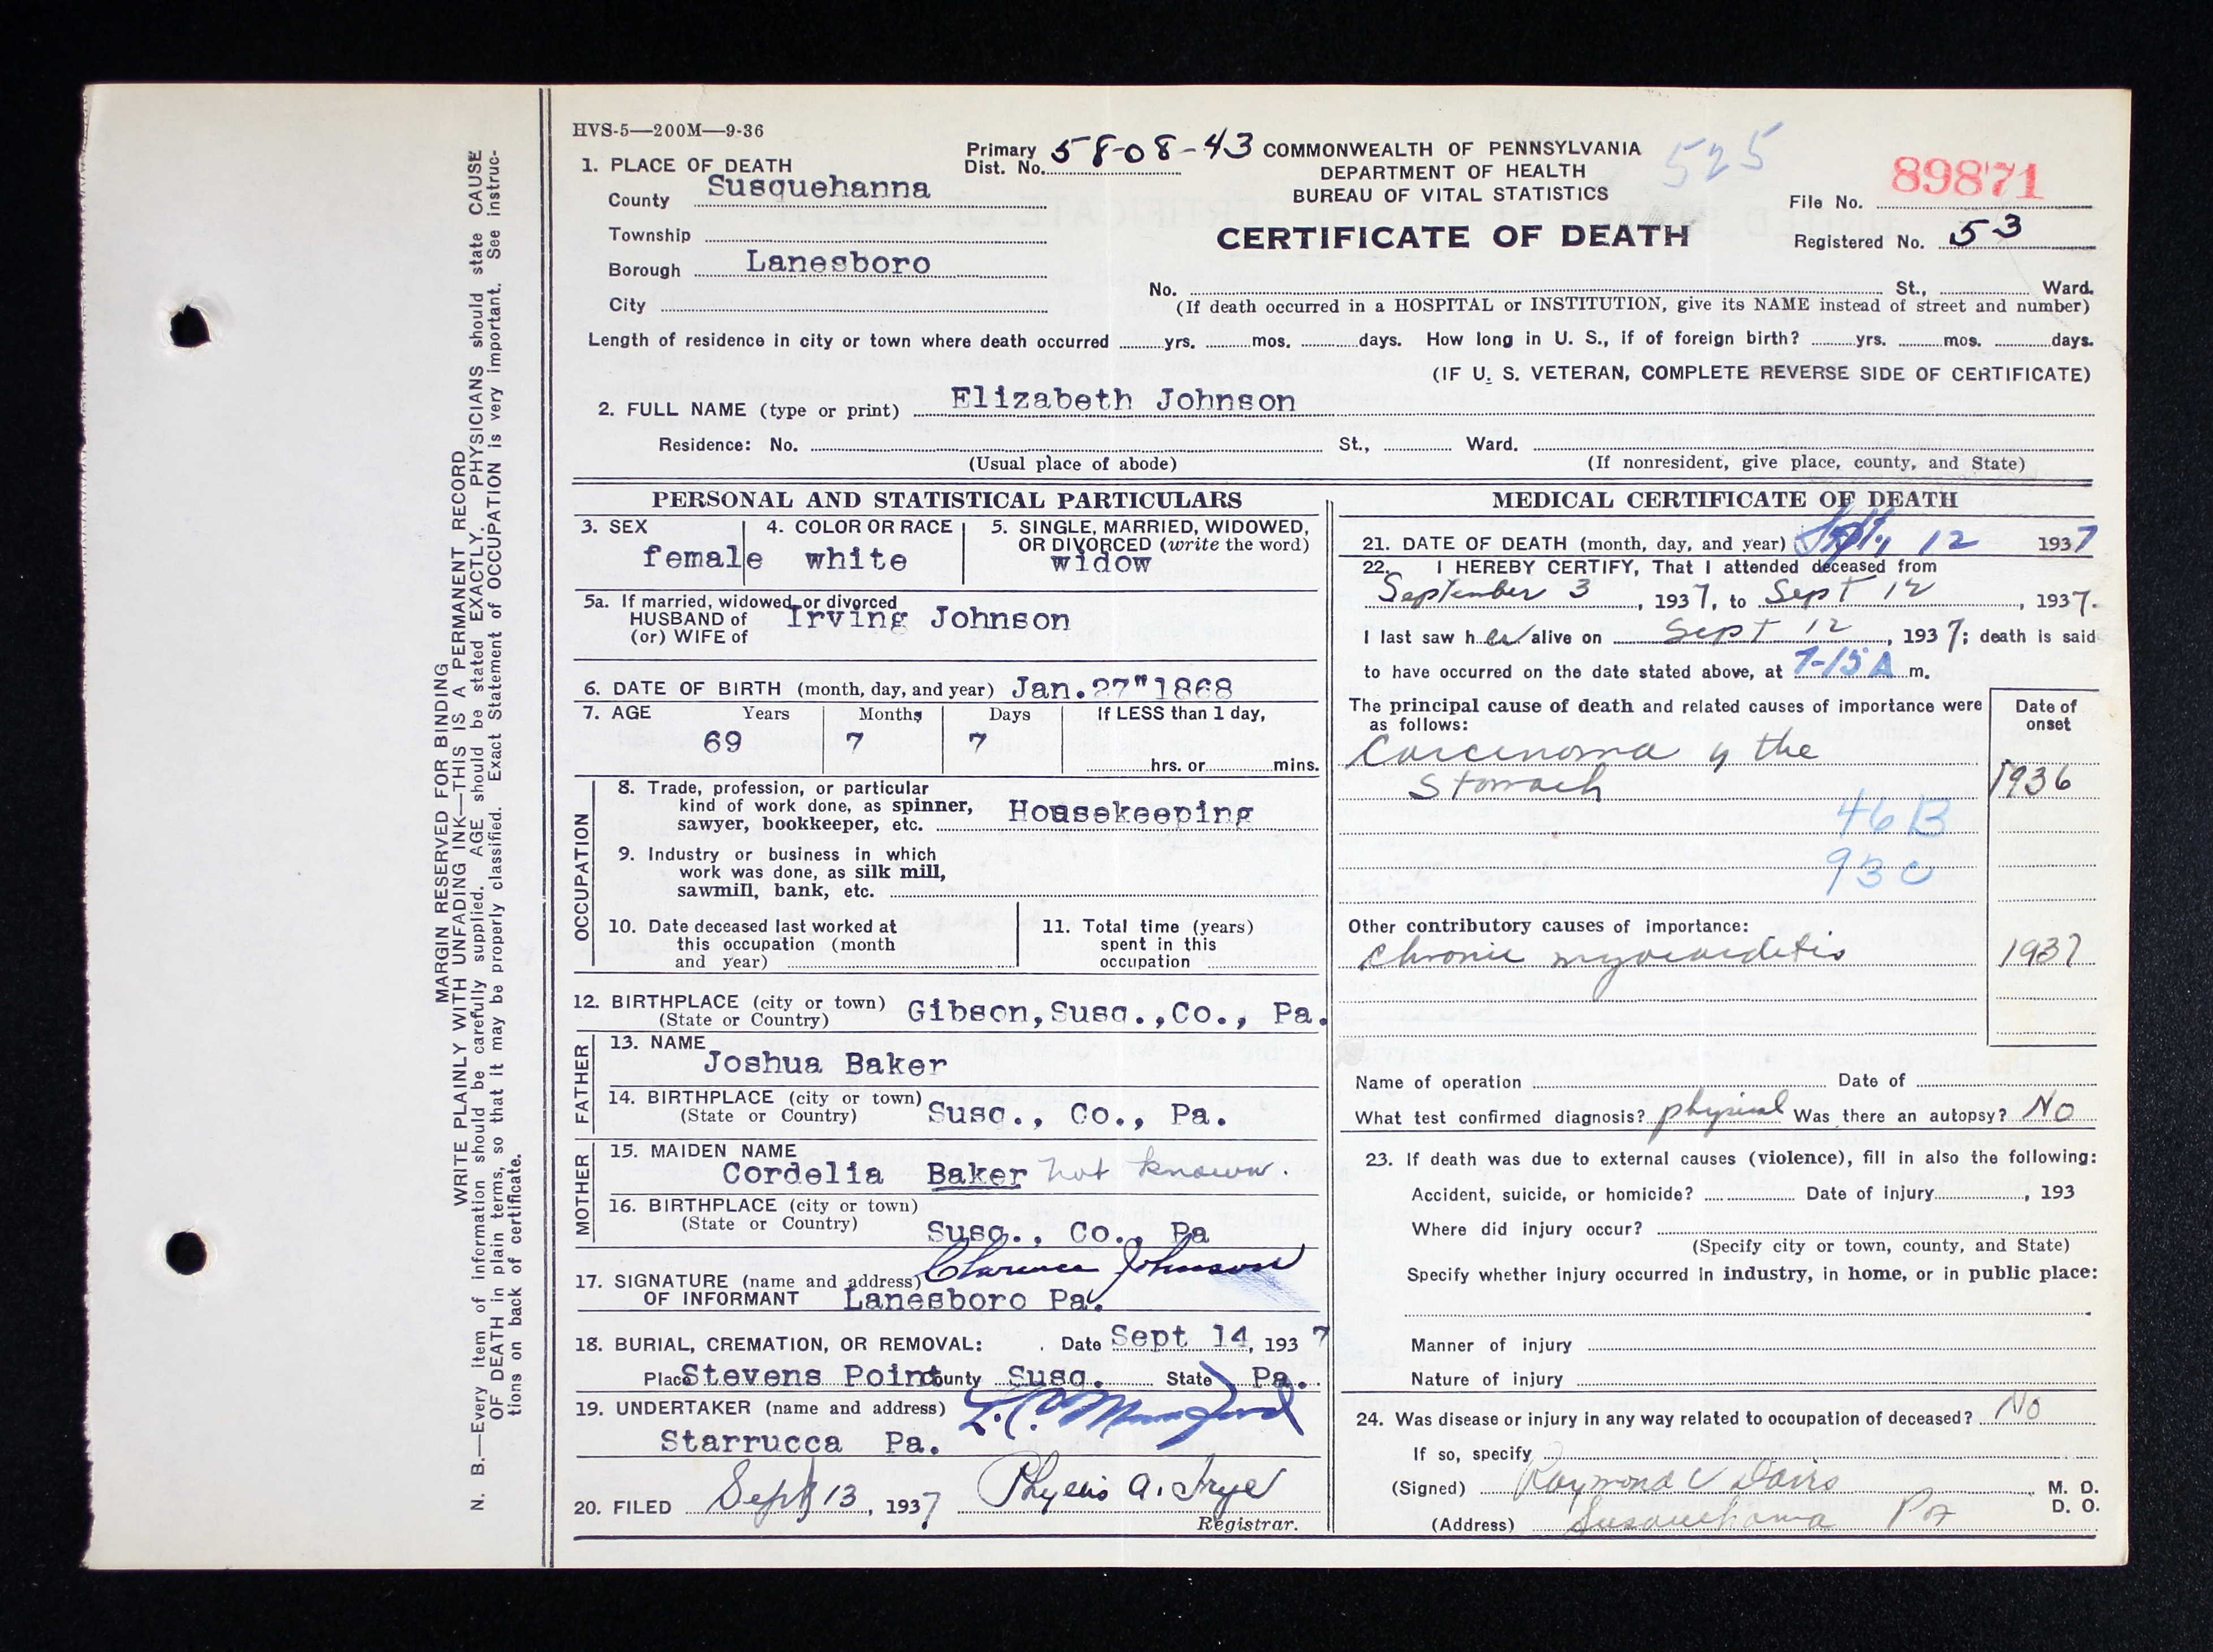 HVS-5—200M—9-36
1. PLACE OF DEATH
County Susquehanna
Township
Borough Lanesboro
City
Primary Dist. No. 58-08-43
COMMONWEALTH OF PENNSYLVANIA
DEPARTMENT OF HEALTH
BUREAU OF VITAL STATISTICS
CERTIFICATE OF DEATH
525
89871
File No.
Registered No. 53
No. St., Ward.
(If death occurred in a HOSPITAL or INSTITUTION, give its NAME instead of street and number)
Length of residence in city or town where death occurred yrs. mos. days. How long in U. S., if of foreign birth? yrs. mos. days.
(IF U. S. VETERAN, COMPLETE REVERSE SIDE OF CERTIFICATE)
2. FULL NAME (type or print) Elizabeth Johnson
Residence: No. St., Ward.
(Usual place of abode) (If nonresident, give place, county, and State)
PERSONAL AND STATISTICAL PARTICULARS
3. SEX 4. COLOR OR RACE 5. SINGLE, MARRIED, WIDOWED,
OR DIVORCED (write the word)
female white widow
5a. If married, widowed, or divorced
HUSBAND of Irving Johnson
(or) WIFE of
6. DATE OF BIRTH (month, day, and year) Jan. 27" 1868
7. AGE Years Months Days If LESS than 1 day,
69 7 7
hrs. or mins.
OCCUPATION
8. Trade, profession, or particular
kind of work done, as spinner,
sawyer, bookkeeper, etc. Housekeeping
9. Industry or business in which
work was done, as silk mill,
sawmill, bank, etc.
10. Date deceased last worked at
this occupation (month
and year)
11. Total time (years)
spent in this
occupation
12. BIRTHPLACE (city or town) Gibson, Susq., Co., Pa.
(State or Country)
FATHER
13. NAME
Joshua Baker
14. BIRTHPLACE (city or town)
(State or Country) Susq., Co., Pa.
MOTHER
15. MAIDEN NAME
Cordelia Baker not known.
16. BIRTHPLACE (city or town)
(State or Country) Susq., Co., Pa
17. SIGNATURE (name and address) Clarence Johnson
OF INFORMANT Lanesboro Pa.
18. BURIAL, CREMATION, OR REMOVAL: Date Sept 14, 1937
Place Stevens Point County Susq. State Pa.
19. UNDERTAKER (name and address)
Starrucca Pa.
20. FILED Sept 13, 1937 Phyllis A. Frye
Registrar.
MEDICAL CERTIFICATE OF DEATH
21. DATE OF DEATH (month, day, and year) Sept. 12 1937
22. I HEREBY CERTIFY, That I attended deceased from
September 3, 1937, to Sept 12, 1937.
I last saw her alive on Sept 12, 1937; death is said
to have occurred on the date stated above, at 7-15 A m.
The principal cause of death and related causes of importance were
as follows:
Date of
onset
Carcinoma of the
Stomach 1936
46 B
93 C
Other contributory causes of importance:
Chronic myocarditis 1937
Name of operation Date of
What test confirmed diagnosis? physical Was there an autopsy? No
23. If death was due to external causes (violence), fill in also the following:
Accident, suicide, or homicide? Date of injury , 193
Where did injury occur?
(Specify city or town, county, and State)
Specify whether injury occurred in industry, in home, or in public place:
Manner of injury
Nature of injury
24. Was disease or injury in any way related to occupation of deceased? No
If so, specify
(Signed) Raymond C Davis M. D.
D. O.
(Address) Susquehanna Pa
MARGIN RESERVED FOR BINDING
WRITE PLAINLY WITH UNFADING INK—THIS IS A PERMANENT RECORD
N. B.—Every item of information should be carefully supplied. AGE should be stated EXACTLY. PHYSICIANS should state CAUSE
OF DEATH in plain terms, so that it may be properly classified. Exact Statement of OCCUPATION is very important. See instruc-
tions on back of certificate.